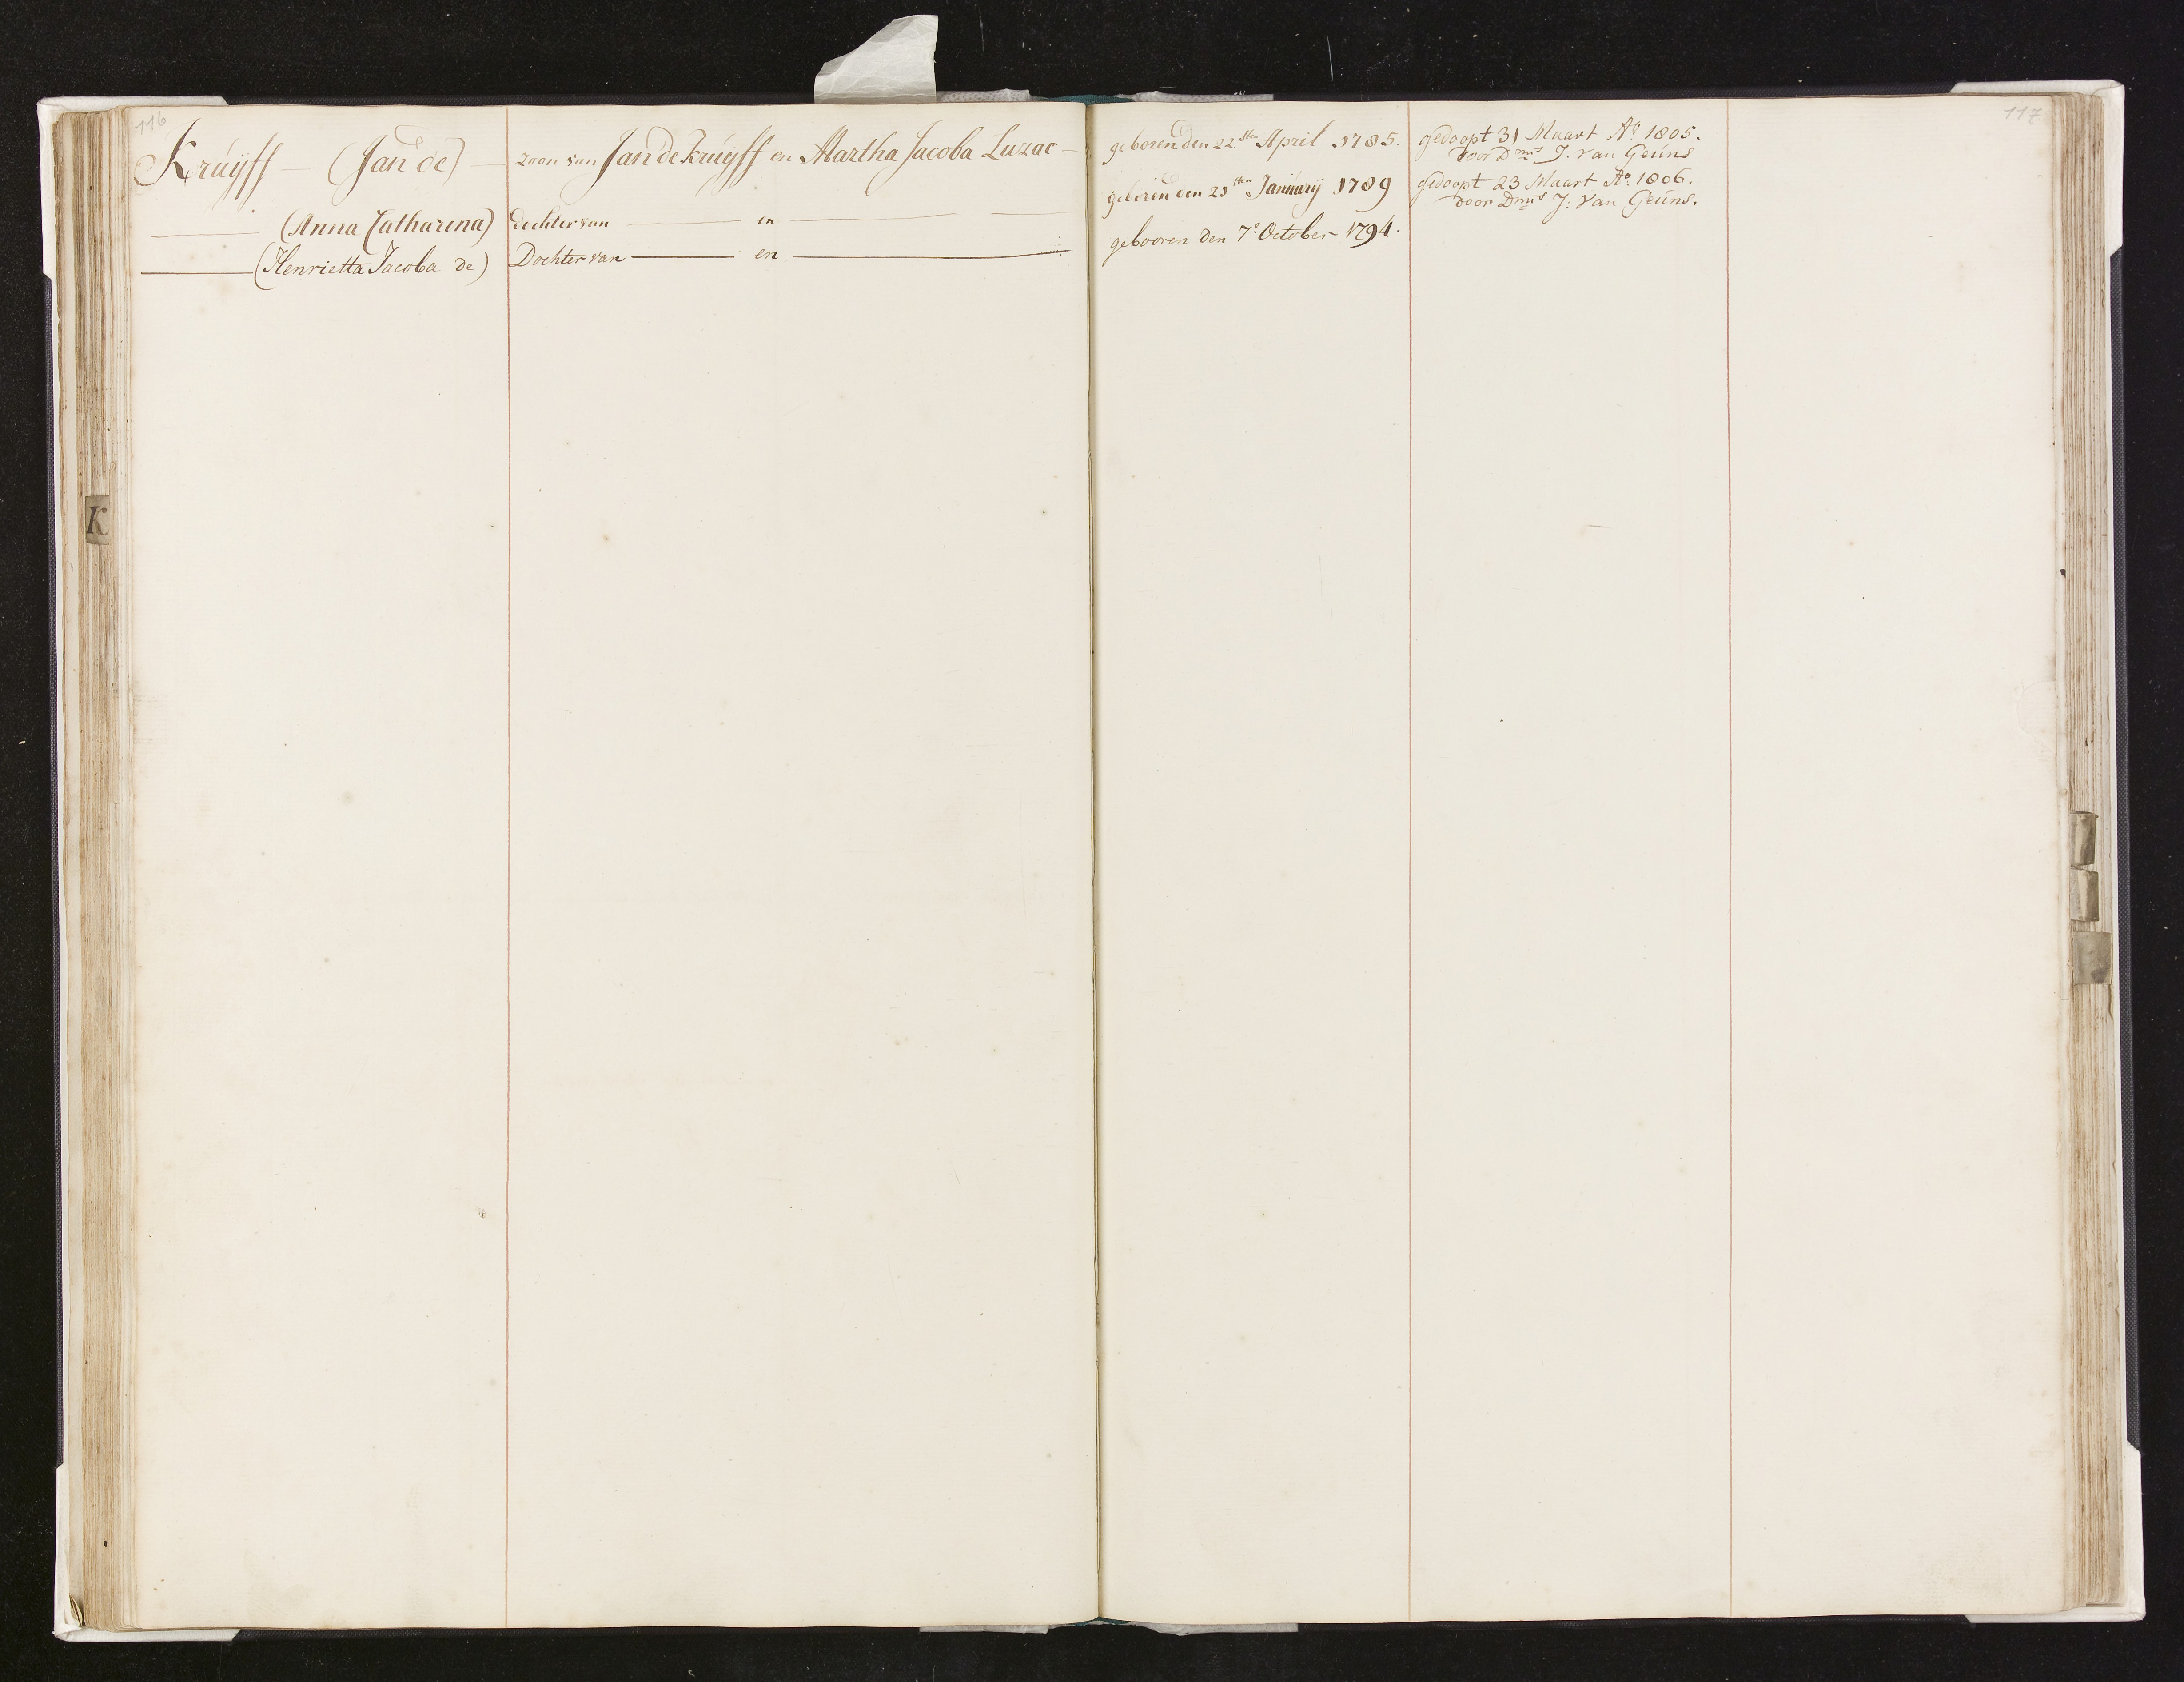 116
117
Kruijff — (Jan de) — zoon van Jan de Kruijff en Martha Jacoba Luzac — geboren den 22sten April 1785. gedoopt 31 Maart Ao 1805.
door Dmns J. van Geuns
——— (Anna Catharina) dochter van ——— en ——— geboren den 21sten January 1789 gedoopt 23 Maart Ao. 1806.
door Dmns J: van Geuns.
——— (Henrietta Jacoba de) Dochter van ——— en ——— gebooren den 7e October 1794.
K